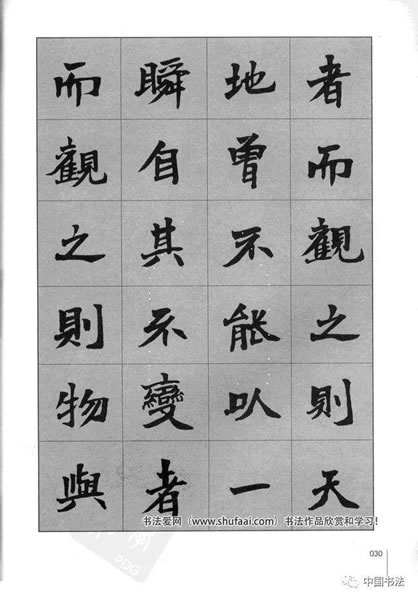 者而觀之則天
地曾不能以一
瞬自其不變者
而觀之則物與
书法爱网（www.shufaai.com）书法作品欣赏和学习！
030
PDG
中国书法